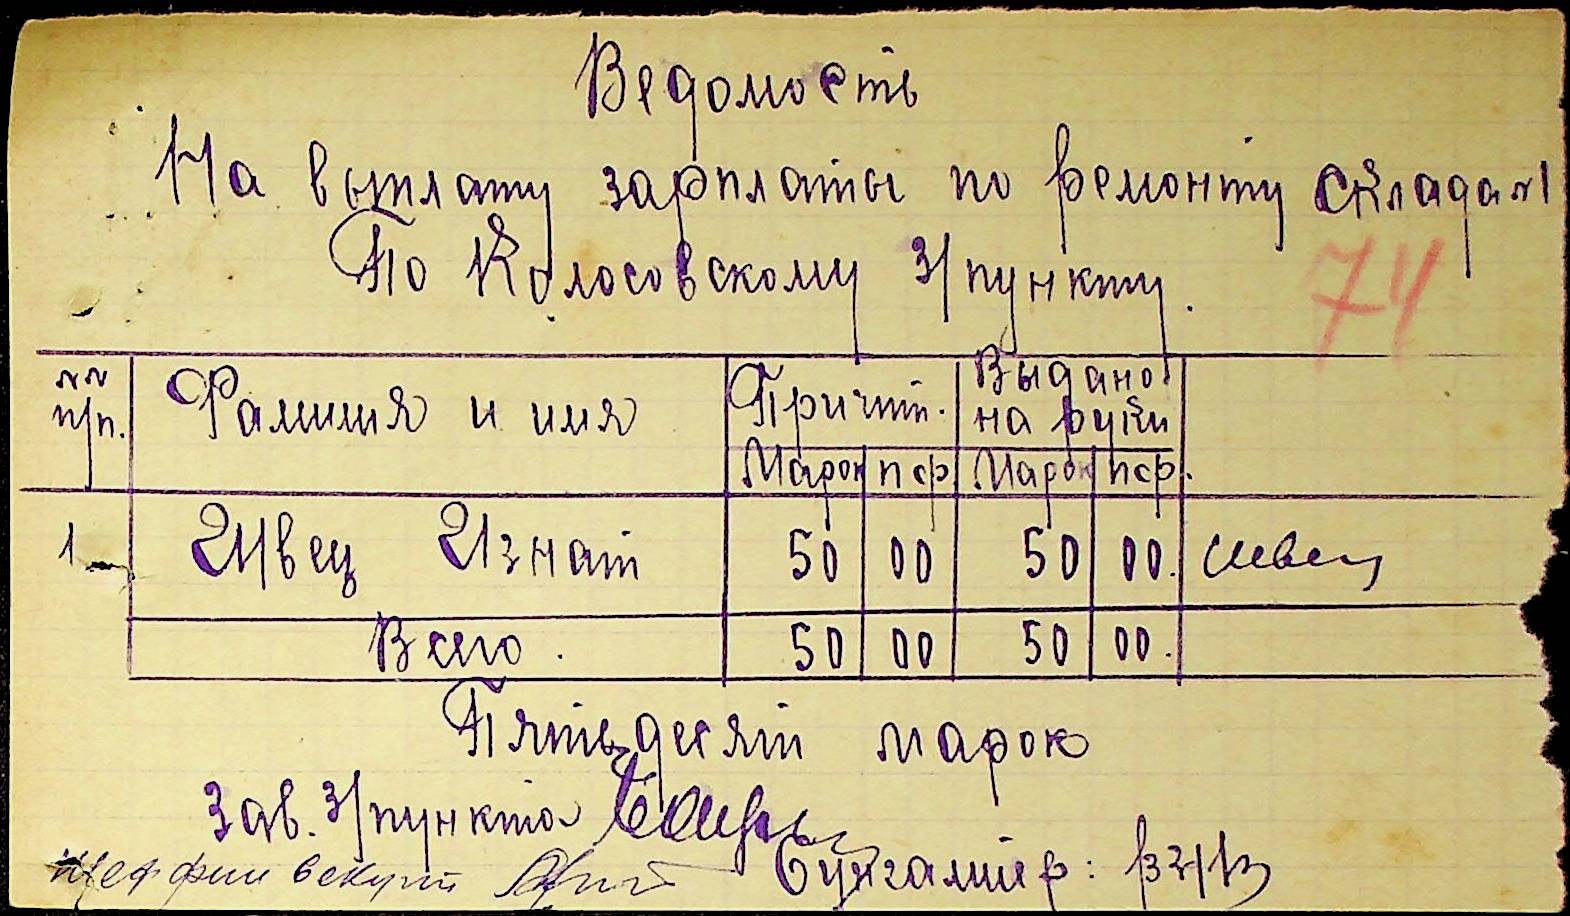 Ведомость
На выплату зарплаты по ремонту склада №1
По Колосовскому з/пункту.
74
№№ п/п. Фамилия и имя Причит. Выдано на руки
Марок пф Марок пф.
1 Швец Игнат 50 00 50 00. Швец
Всего. 50 00 50 00.
Пятьдесят марок
Зав. з/пункта
Бухгалтер: